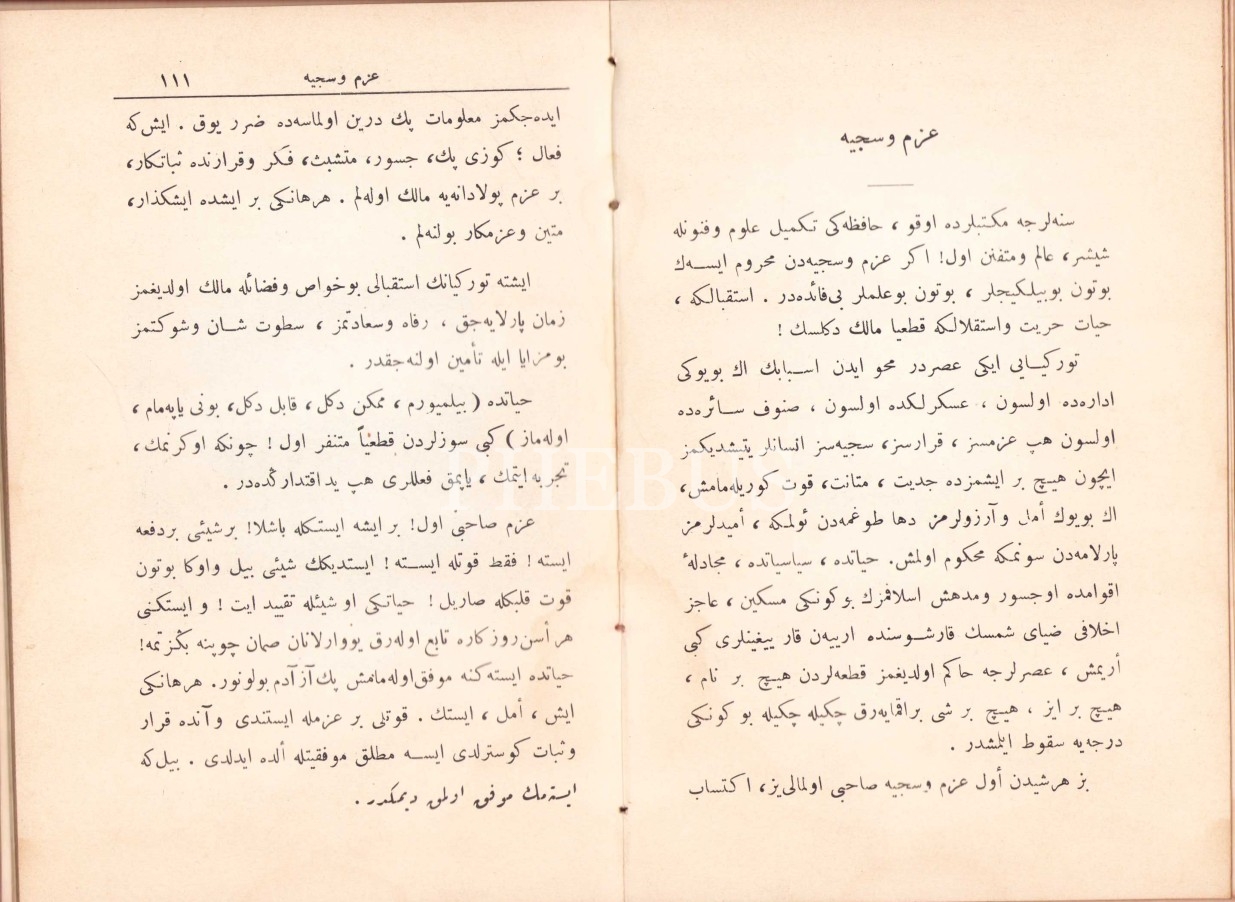 عزم وسجیه
سنه‌لرجه مکتبلرده اوقو ، حافظه‌کی تکمیل علوم وفنونله
شیشیر، عالم ومتفنن اول! اکر عزم وسجیه‌دن محروم ایسه‌ك
بوتون بوبیلکیجلر ، بوتون بوعلملر بی‌فائده‌در . استقبالکه ،
حیات حریت واستقلالکه قطعیا مالك دکلسك !
تورکیایی ایکی عصردر محو ایدن اسبابك اك بویوکی
اداره‌ده اولسون ، عسکرلکده اولسون ، صنوف سائره‌ده
اولسون هپ عزمسز ، قرارسز، سجیه‌سز انسانلر یتیشدیکمز
ایچون هیچ بر ایشمزده جدیت ، متانت، قوت کوریله‌مامش،
اك بویوك أمل وآرزولرمز دها طوغمه‌دن ئولمکه ، أمیدلرمز
پارلامه‌دن سونمکه محکوم اولمش. حیاتده ، سیاسیاتده ، مجادلهٔ
اقوامده اوجسور ومدهش اسلافمزك بوکونکی مسکین ، عاجز
اخلافی ضیای شمسك قارشوسنده اریه‌ن قار ییغینلری کبی
أریمش ، عصرلرجه حاکم اولدیغمز قطعه‌لردن هیچ بر نام ،
هیچ بر ایز ، هیچ بر شی براقمایه‌رق چکیله چکیله بو کونکی
درجه‌یه سقوط ایلمشدر .
بز هرشیدن أول عزم وسجیه صاحبی اولمالی‌یز، اکتساب
عزم وسجیه ١١١
ایده‌جکمز معلومات پك درین اولماسه‌ده ضرر یوق . ایش که
فعال ؛ کوزی پك، جسور، متشبث، فکر وقرارنده ثباتکار،
بر عزم پولادانه‌یه مالك اوله‌لم . هرهانکی بر ایشده ایشکذار،
متین وعزمکار بولنه‌لم .
ایشته تورکیانك استقبالی بوخواص وفضائله مالك اولدیغمز
زمان پارلایه‌جق ، رفاه وسعادتمز ، سطوت شان وشوکتمز
بومزایا ایله تأمین اولنه‌جقدر .
حیاتده ( بیلمیورم ، ممکن دکل، قابل دکل، بونی یاپه‌مام ،
اوله‌ماز ) کبی سوزلردن قطعیاً متنفر اول ! چونکه اوکرنمك ،
تجربه ایتمك ، یاپمق فعللری هپ ید اقتدارکده‌در .
عزم صاحبی اول! بر ایشه ایستکله باشلا! برشیئی بردفعه
ایسته ! فقط قوتله ایسته ! ایستدیكك شیئی بیل واوکا بوتون
قوت قلبکله صاریل ! حیاتکی او شیئله تقیید ایت ! و ایستکنی
هر أسن روزکاره تابع اوله‌رق یووارلانان صمان چوپنه بکزتمه!
حیاتده ایسته‌کنه موفق اوله‌مامش پك آز آدم بولونور. هرهانکی
ایش ، أمل ، ایستك . قوتلی بر عزمله ایستندی وآنده قرار
وثبات کوسترلدی ایسه مطلق موفقیتله ألده ایدلدی . بیل که
ایسته‌مك موفق اولمق دیمکدر .